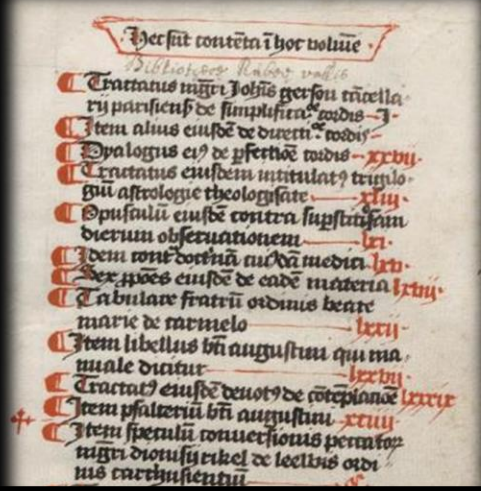 Hec sūt contēta ī hoc volūīe
Bibliothece Rubee vallis
Tractatus mgr̄i Joh̄is gerson cācella
rij parisiens̄ de simplificatᵒᵉ cordis I
Item alius eiusdē de directiᵒᵉ cordis
Dyalogus eiꝰ de ꝑfectiōe cordis xxvij.
Tractatus eiusdem intitulatꝰ trigilo
giū astrologie theologisate xliij
Opusculū eiusdē contra suꝑstitiosam
dierum obseruationem lxi.
Idem contͣ doctͥnā cuiꝰdā medici lxv.
Sex ꝓpōes eiusdē de eadē materia lxviij
Tabulare fratrū ordinis beate
marie de carmelo lxxij
Item libellus bt̄i augustini qui ma
nuale dicitur lxxvij
Tractatꝰ eiusdē deuotꝰ de cōtēplatiōe lxxxix
Item psalteriū bt̄i augustini xciiij
Item speculū conuersionis peccatoꝝ
mgr̄i dionisij rikel de leewis ordi
nis carthusientiū